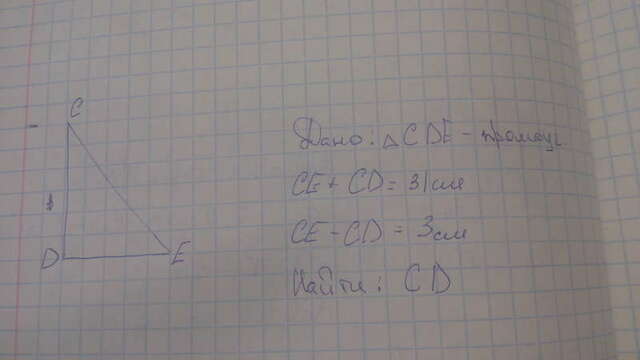 C
D
E
Дано: △CDE - прямоуг
CE + CD = 31 см
CE - CD = 3 см
Найти: CD